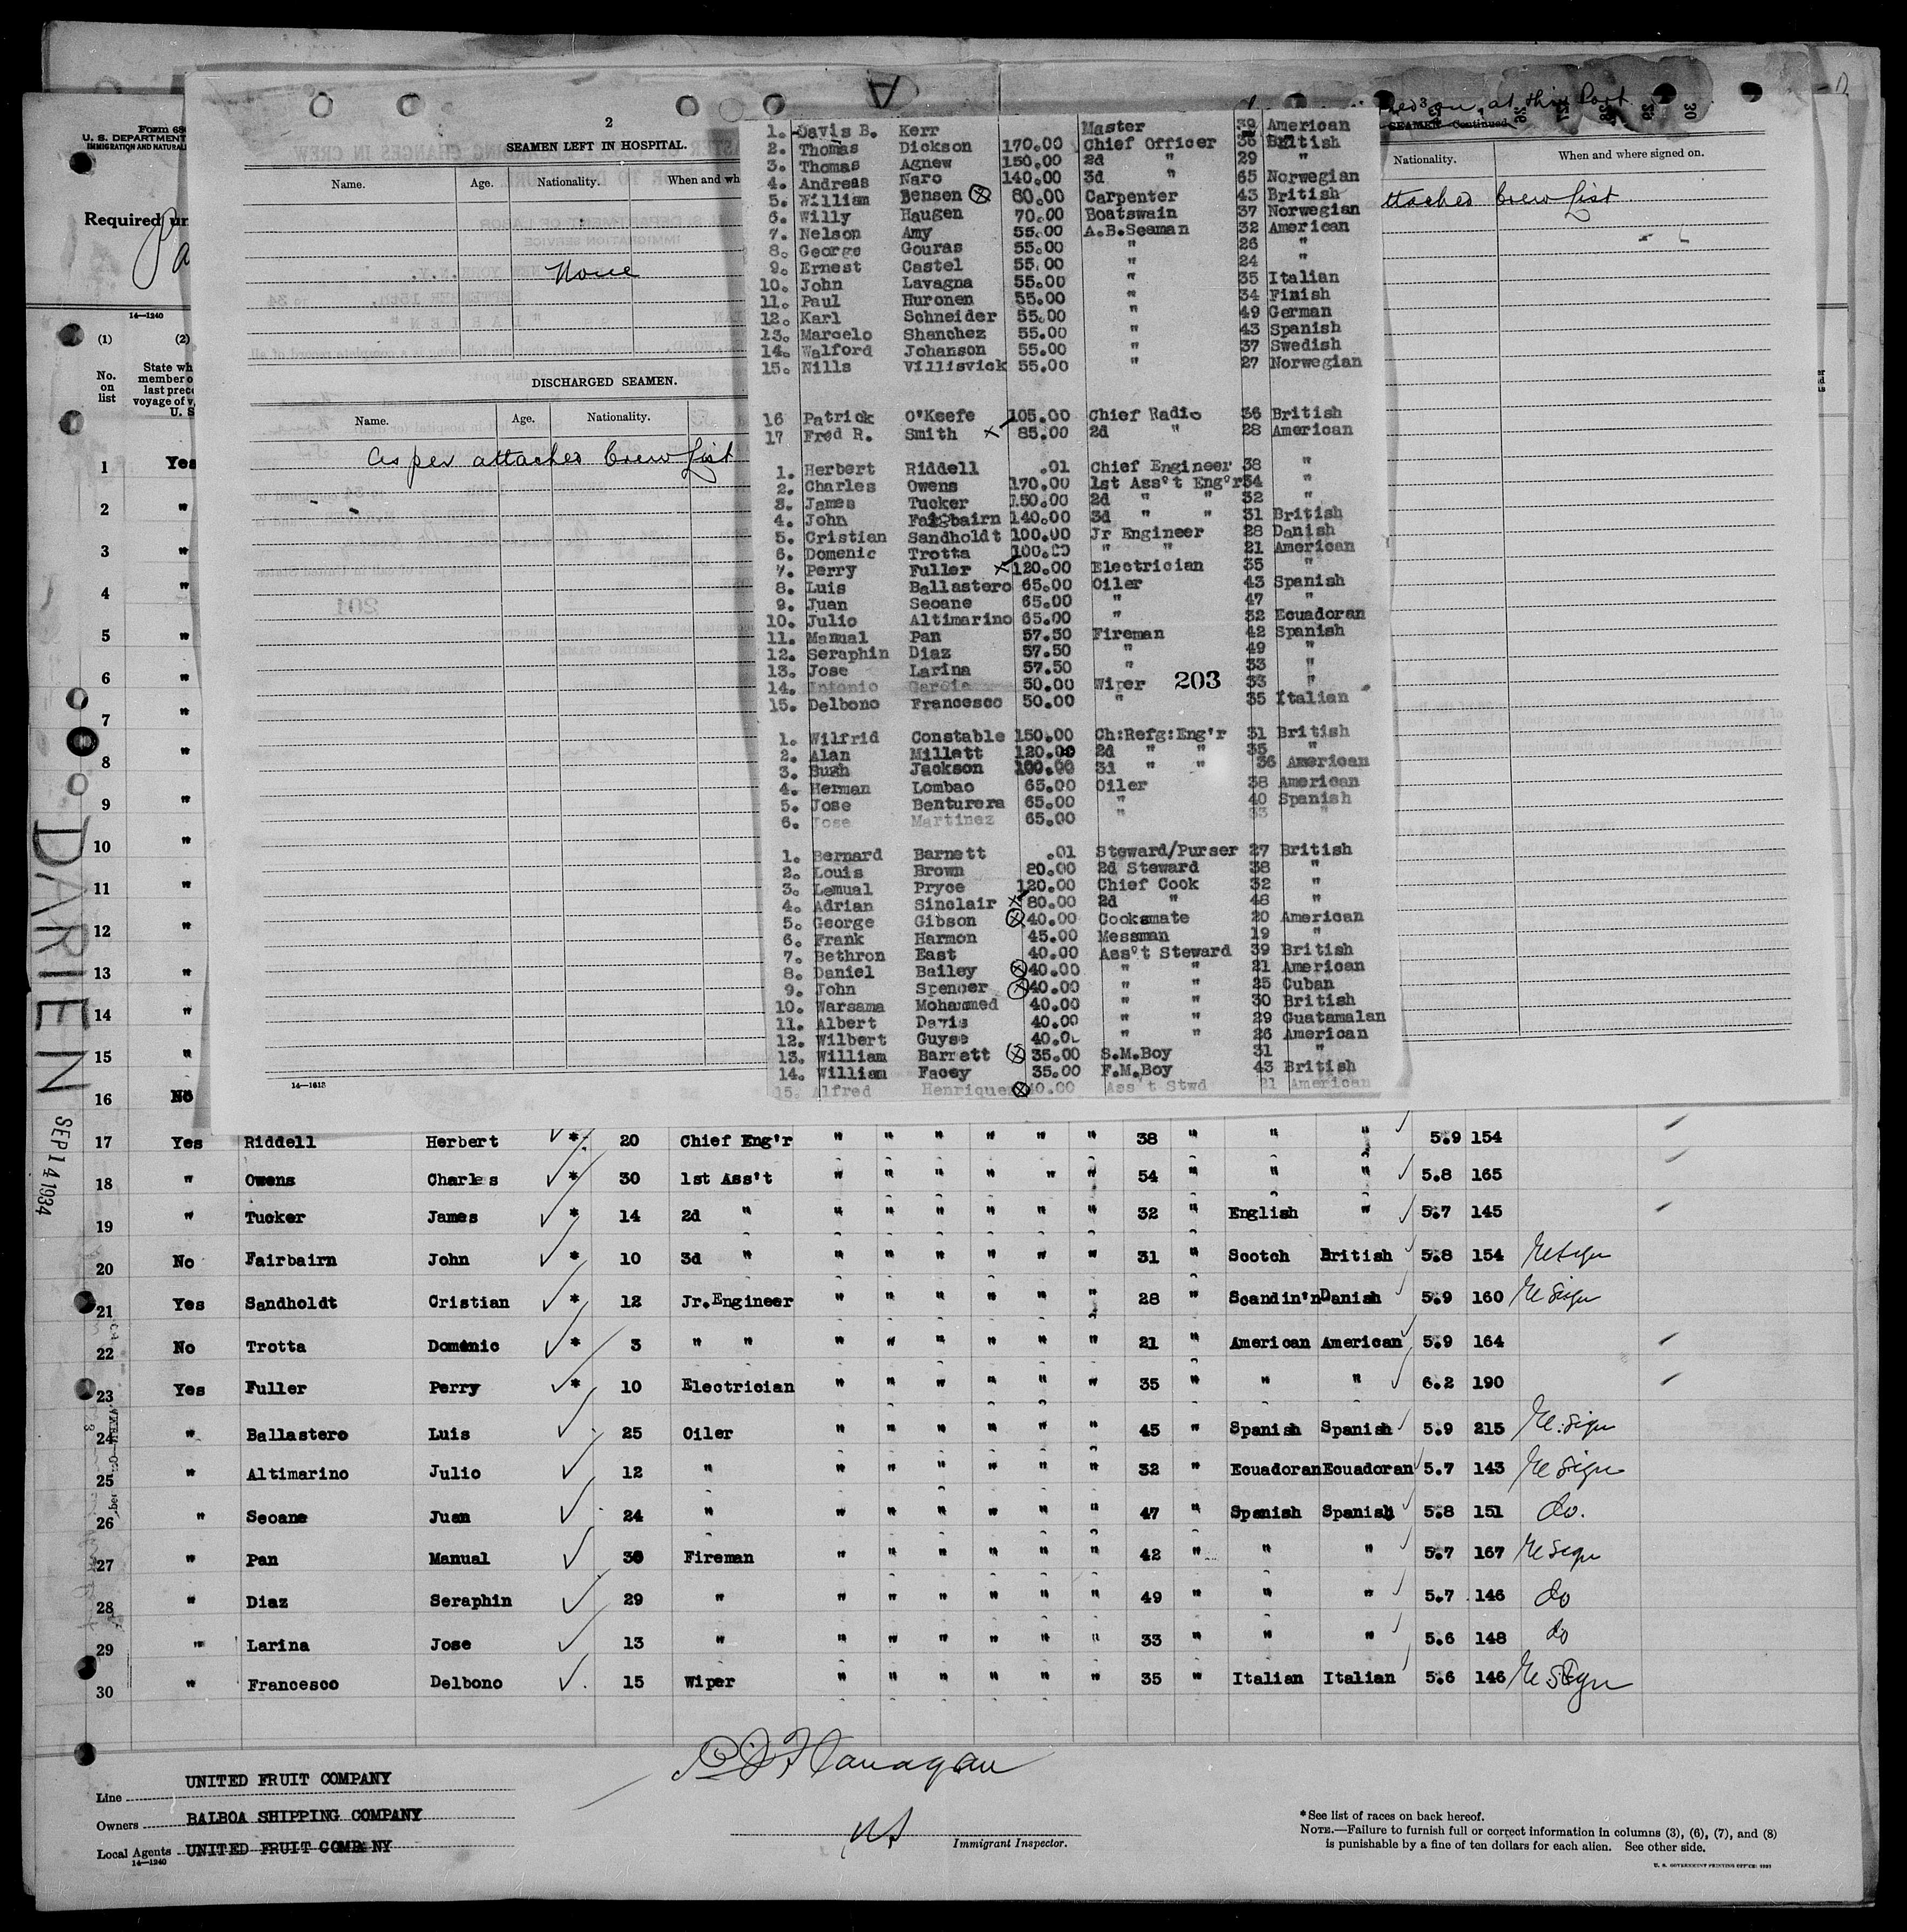 Form 68
U. S. DEPARTMENT
IMMIGRATION AND NATURAL
Required un
14—1240
(1) (2)
No. on list
State wh
member o
last prec
voyage of v
U. S
DARIEN
SEP 14 1934
2
SEAMEN LEFT IN HOSPITAL.
Name. Age. Nationality. When and wh
None
DISCHARGED SEAMEN.
Name. Age. Nationality.
As per attached Crew List
14—1613
3
on at this Port
SEAMEN Continued
Nationality. When and where signed on.
ttached Crew List
1. Davis B. Kerr Master 39 American
2. Thomas Dickson 170.00 Chief Officer 36 British
3. Thomas Agnew 150.00 2d " 29 "
4. Andreas Naro 140.00 3d " 65 Norwegian
5. William Bensen 80.00 Carpenter 43 British
6. Willy Haugen 70.00 Boatswain 37 Norwegian
7. Nelson Amy 55.00 A.B.Seaman 32 American
8. George Gouras 55.00 " 26 "
9. Ernest Castel 55.00 " 24 "
10. John Lavagna 55.00 " 35 Italian
11. Paul Huronen 55.00 " 34 Finish
12. Karl Schneider 55.00 " 49 German
13. Marcelo Shanchez 55.00 " 43 Spanish
14. Walford Johanson 55.00 " 37 Swedish
15. Nills Villisvick 55.00 " 27 Norwegian
16 Patrick O'Keefe 105.00 Chief Radio 36 British
17 Fred R. Smith x 85.00 2d " 28 American
1. Herbert Riddell .01 Chief Engineer 38 "
2. Charles Owens 170.00 1st Ass't Eng'r 54 "
3. James Tucker 150.00 2d " " 32 "
4. John Fairbairn 140.00 3d " " 31 British
5. Cristian Sandholdt 100.00 Jr Engineer 28 Danish
6. Domenic Trotta 100.00 " " 21 American
7. Perry Fuller x 120.00 Electrician 35 "
8. Luis Ballastero 65.00 Oiler 43 Spanish
9. Juan Seoane 65.00 " 47 "
10. Julio Altimarino 65.00 " 32 Ecuadoran
11. Manual Pan 57.50 Fireman 42 Spanish
12. Seraphin Diaz 57.50 " 49 "
13. Jose Larina 57.50 " 33 "
14. Antonio Garcia 50.00 Wiper 203 33 "
15. Delbono Francesco 50.00 " 35 Italian
1. Wilfrid Constable 150.00 Ch:Refg:Eng'r 31 British
2. Alan Millett 120.00 2d " " 35 "
3. Hugh Jackson 100.00 3d " " 36 American
4. Herman Lombao 65.00 Oiler 38 American
5. Jose Benturera 65.00 " 40 Spanish
6. Jose Martinez 65.00 " 33 "
1. Bernard Barnett .01 Steward/Purser 27 British
2. Louis Brown 20.00 2d Steward 38 "
3. Lemual Pryce 120.00 Chief Cook 32 "
4. Adrian Sinclair x 80.00 2d " 48 "
5. George Gibson 40.00 Cooksmate 20 American
6. Frank Harmon 45.00 Messman 19 "
7. Bethron East 40.00 Ass't Steward 39 British
8. Daniel Bailey 40.00 " " 21 American
9. John Spencer 40.00 " " 25 Cuban
10. Warsama Mohammed 40.00 " " 30 British
11. Albert Davis 40.00 " " 29 Guatamalan
12. Wilbert Guyse 40.0 " " 26 American
13. William Barrett 35.00 S.M.Boy 31 "
14. William Facey 35.00 F.M.Boy 43 British
15. Alfred Henrique 40.00 Ass't Stwd 21 American
1 Yes
2 "
3 "
4 "
5 "
6 "
7 "
8 "
9 "
10 "
11 "
12 "
13 "
14 "
15 "
16 No
17 Yes Riddell Herbert * 20 Chief Eng'r " " " " " " 38 " " " 5.9 154
18 " Owens Charles * 30 1st Ass't " " " " " " 54 " " " 5.8 165
19 " Tucker James * 14 2d " " " " " " " 32 " English " 5.7 145
20 No Fairbairn John * 10 3d " " " " " " " 31 " Scotch British 5.8 154 Resign
21 Yes Sandholdt Cristian * 12 Jr.Engineer " " " " " " 28 " Scandin'n Danish 5.9 160 Resign
22 No Trotta Domenic * 3 " " " " " " " " 21 " American American 5.9 164
23 Yes Fuller Perry * 10 Electrician " " " " " " 35 " " " 6.2 190
24 " Ballastero Luis 25 Oiler " " " " " " 45 " Spanish Spanish 5.9 215 Resign
25 " Altimarino Julio 12 " " " " " " " 32 " Ecuadoran Ecuadoran 5.7 143 Resign
26 " Seoane Juan 24 " " " " " " " 47 " Spanish Spanish 5.8 151 do.
27 " Pan Manual 30 Fireman " " " " " " 42 " " " 5.7 167 Resign
28 " Diaz Seraphin 29 " " " " " " " 49 " " " 5.7 146 do
29 " Larina Jose 13 " " " " " " " 33 " " " 5.6 148 do
30 " Francesco Delbono 15 Wiper " " " " " " 35 " Italian Italian 5.6 146 Resign
Line UNITED FRUIT COMPANY
Owners BALBOA SHIPPING COMPANY
Local Agents UNITED FRUIT COMPANY
14—1240
Flanagan
Immigrant Inspector.
*See list of races on back hereof.
NOTE.—Failure to furnish full or correct information in columns (3), (6), (7), and (8)
is punishable by a fine of ten dollars for each alien. See other side.
U. S. GOVERNMENT PRINTING OFFICE: